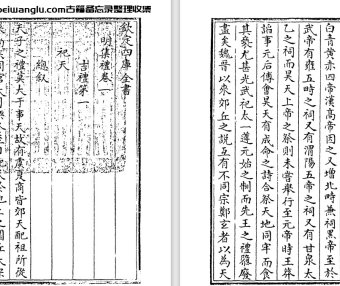 beiwanglu.com古籍备忘录整理收集
欽定四庫全書
明集禮卷一
吉禮第一
祀天
總叙
天子之禮莫大于事天故有虞夏商皆郊天配祖所從
白青黃赤四帝漢高帝因之又增北畤兼祠黑帝至於
武帝有雍五畤之祠又有渭陽五帝之祠又有甘泉太
乙之祠而昊天上帝之祭則未嘗舉行至元帝時王莽
諂事元后傳會昊天有成命之詩合祭天地同牢而食
其褻尤甚光武祀太一遵元始之制而先王之禮隳廢
盡矣魏晉以來郊丘之說互有不同宗鄭玄者以為天